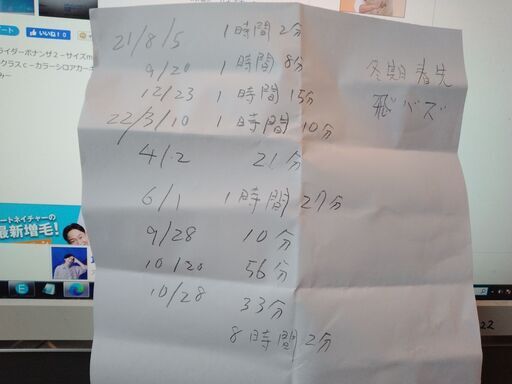 21/8/5 1時間2分
9/20 1時間8分
12/23 1時間15分
22/3/10 1時間10分
4/2 21分
6/1 1時間27分
9/28 10分
10/20 56分
10/28 33分
8時間2分
冬期
飛バズ
いいね! 0
ライダーボナンザ2-サイズm
クラスc-カラーシロアカー
み-
ートネイチャーの
最新増毛!
22